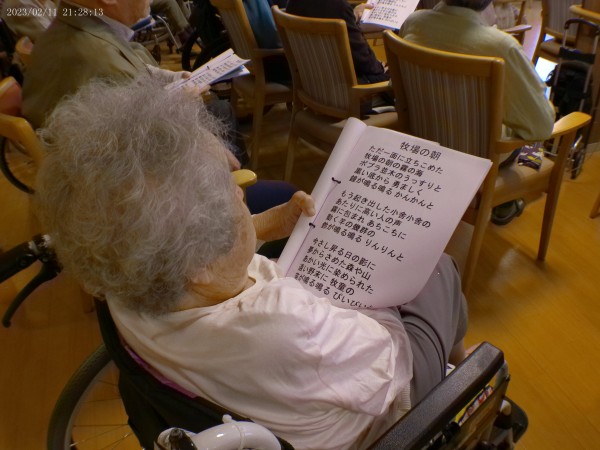 2023/02/11 21:28:13
牧場の朝
ただ一面に立ちこめた
牧場の朝の霧の海
ポプラ並木のうっすりと
黒い底から 勇ましく
鐘が鳴る鳴る かんかんと
もう起き出した小舎小舎の
あたりに高い人の声
霧に包まれ あちこちに
動く羊の幾群の
鈴が鳴る鳴る りんりんと
今さし昇る日の影に
夢からさめた森や山
あかい光に染められた
遠い野末に 牧童の
笛が鳴る鳴る ぴいぴい